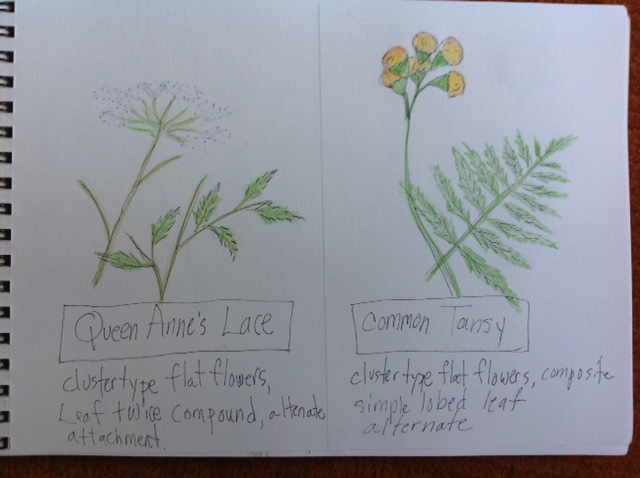 Queen Anne's Lace
clustertype flat flowers,
Leaf twice compound, altenate
attachment.
Common Tansy
clustertype flat flowers, composite
simple lobed leaf
alternate